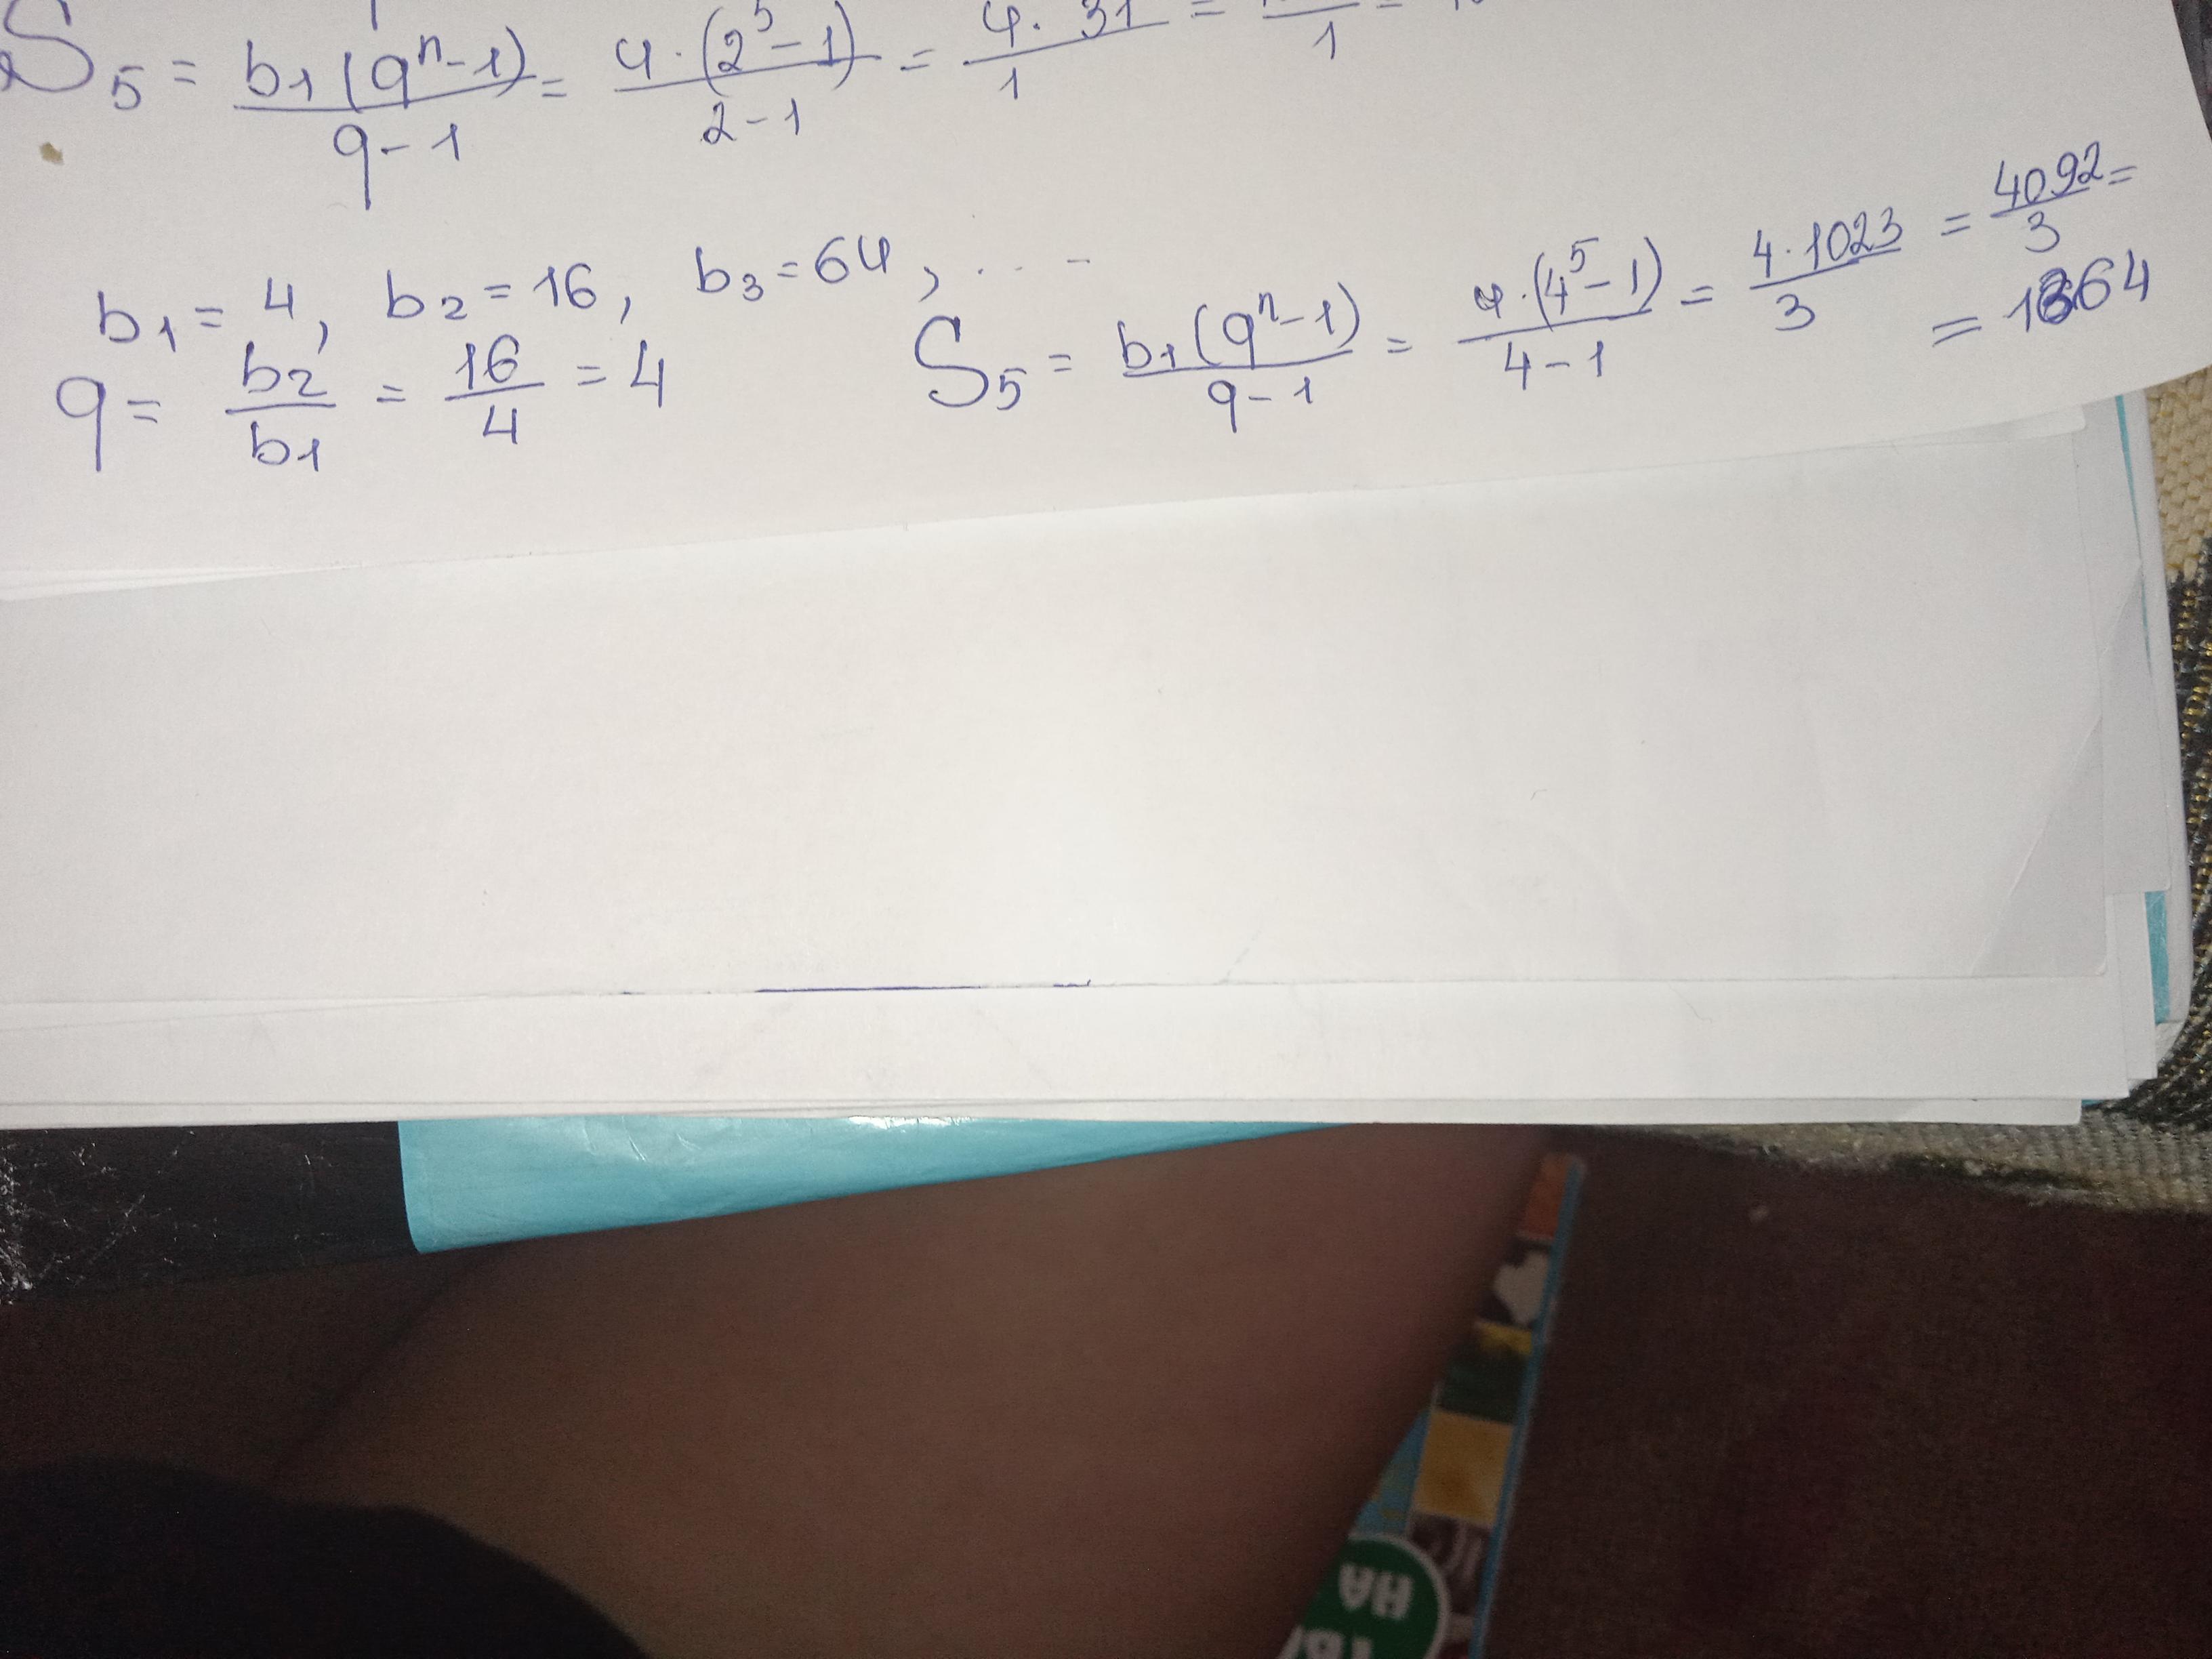 S₅ = b₁(qⁿ-1)/(q-1) = 4·(2⁵-1)/(2-1) = 4·31/1 = /1 =
b₁ = 4, b₂ = 16, b₃ = 64, ...
q = b₂/b₁ = 16/4 = 4
S₅ = b₁(qⁿ-1)/(q-1) = 4·(4⁵-1)/(4-1) = 4·1023/3 = 4092/3 =
= 1364
НА